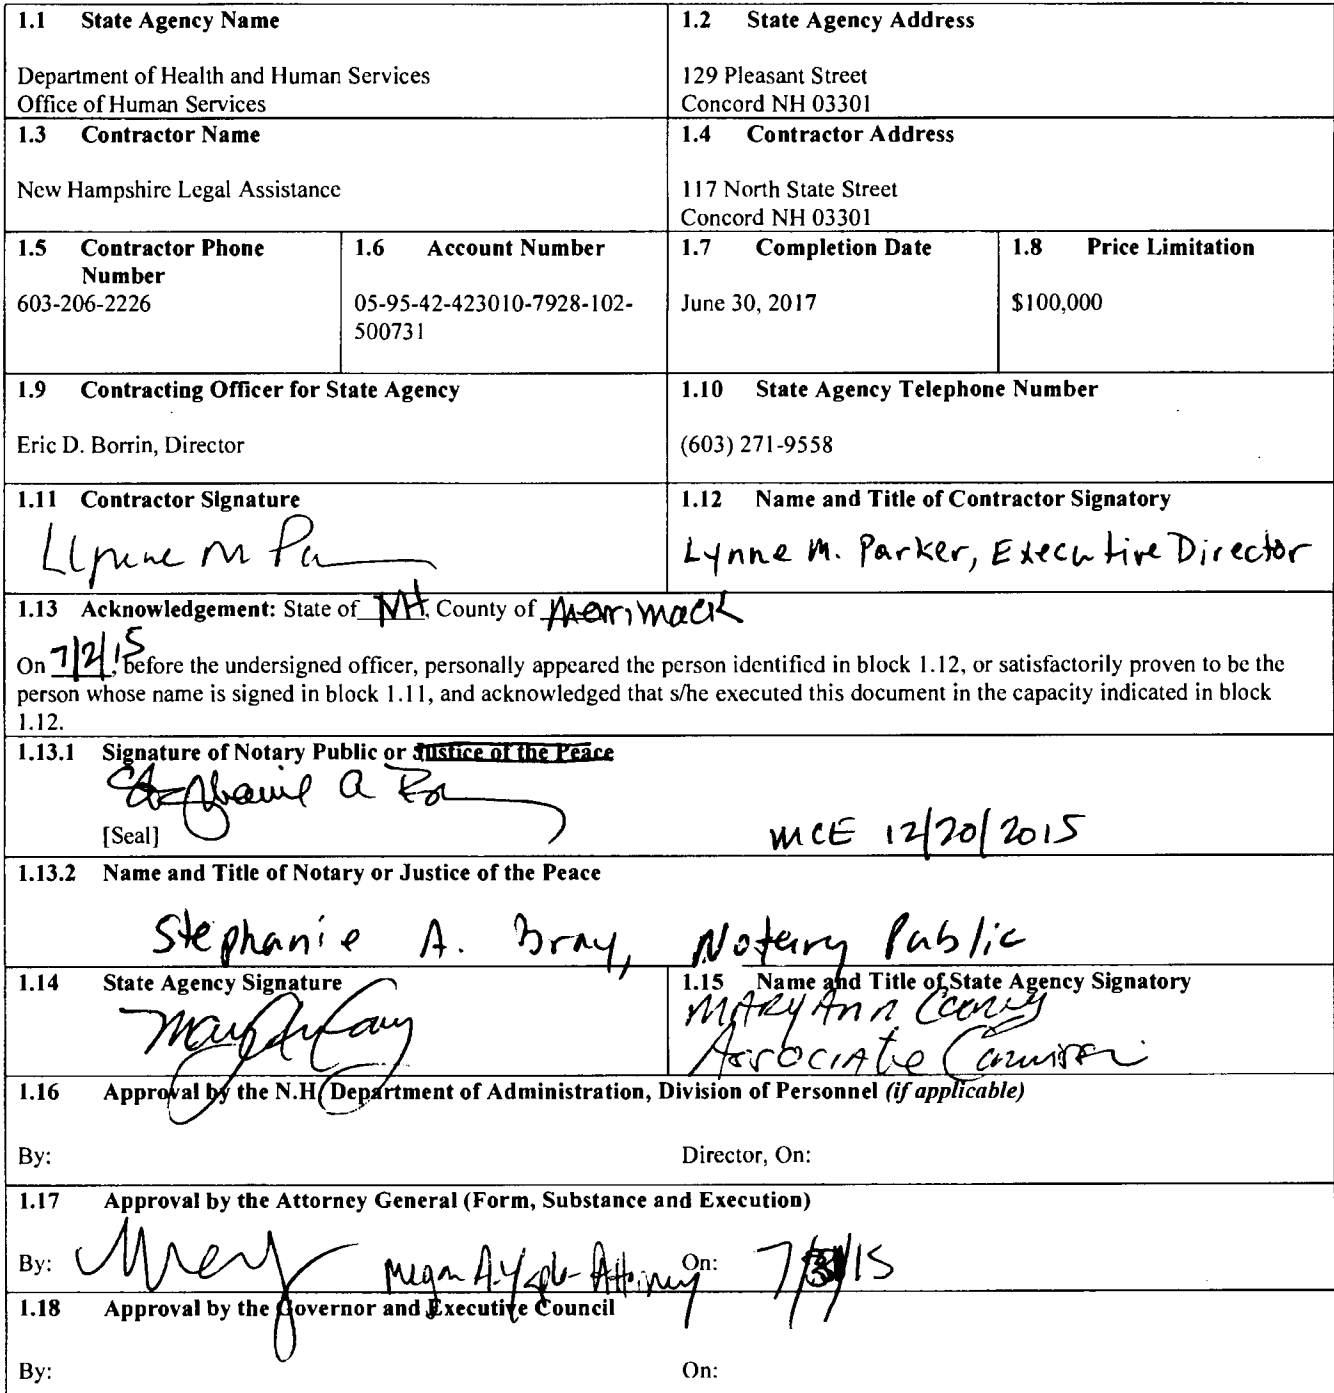 1.1 State Agency Name
Department of Health and Human Services
Office of Human Services
1.2 State Agency Address
129 Pleasant Street
Concord NH 03301
1.3 Contractor Name
New Hampshire Legal Assistance
1.4 Contractor Address
117 North State Street
Concord NH 03301
1.5 Contractor Phone
Number
603-206-2226
1.6 Account Number
05-95-42-423010-7928-102-
500731
1.7 Completion Date
June 30, 2017
1.8 Price Limitation
$100,000
1.9 Contracting Officer for State Agency
Eric D. Borrin, Director
1.10 State Agency Telephone Number
(603) 271-9558
1.11 Contractor Signature
Lynne M Pa
1.12 Name and Title of Contractor Signatory
Lynne M. Parker, Executive Director
1.13 Acknowledgement: State of NH, County of Merrimack
On 7/2/15, before the undersigned officer, personally appeared the person identified in block 1.12, or satisfactorily proven to be the
person whose name is signed in block 1.11, and acknowledged that s/he executed this document in the capacity indicated in block
1.12.
1.13.1 Signature of Notary Public or Justice of the Peace
Stephanie A
[Seal]
MCE 12/20/2015
1.13.2 Name and Title of Notary or Justice of the Peace
Stephanie A. Bray, Notary Public
1.14 State Agency Signature
1.15 Name and Title of State Agency Signatory
Mary Ann Cooney
Associate Commissioner
1.16 Approval by the N.H. Department of Administration, Division of Personnel (if applicable)
By:
Director, On:
1.17 Approval by the Attorney General (Form, Substance and Execution)
By: Megan A. Attorney On: 7/ /15
1.18 Approval by the Governor and Executive Council
By:
On: